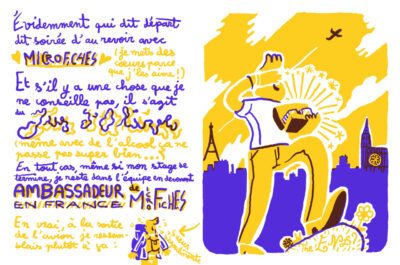 Évidemment qui dit départ
dit soirée d'au revoir avec
MICROFICHES (je mets des
cœurs parce
que j'les aime!)
Et s'il y a une chose que je
ne conseille pas, il s'agit
du Jus d'
(même avec de l'alcool ça ne
passe pas super bien...)
En tout cas même si mon stage se
termine, je reste dans l'équipe en devenant
AMBASSADEUR de MICROFICHES
EN FRANCE
En vrai, à la sortie
de l'avion je ressem-
blais plutôt à ça :
The End